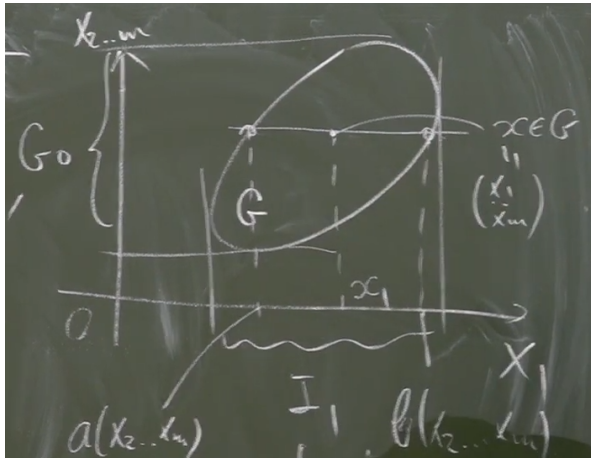 x₂..m
G₀
x ∈ G
"
(x₁ .. xₘ)
G
x₁
0
X₁
I₁
a(x₂..xₘ) b(x₂...xₘ)